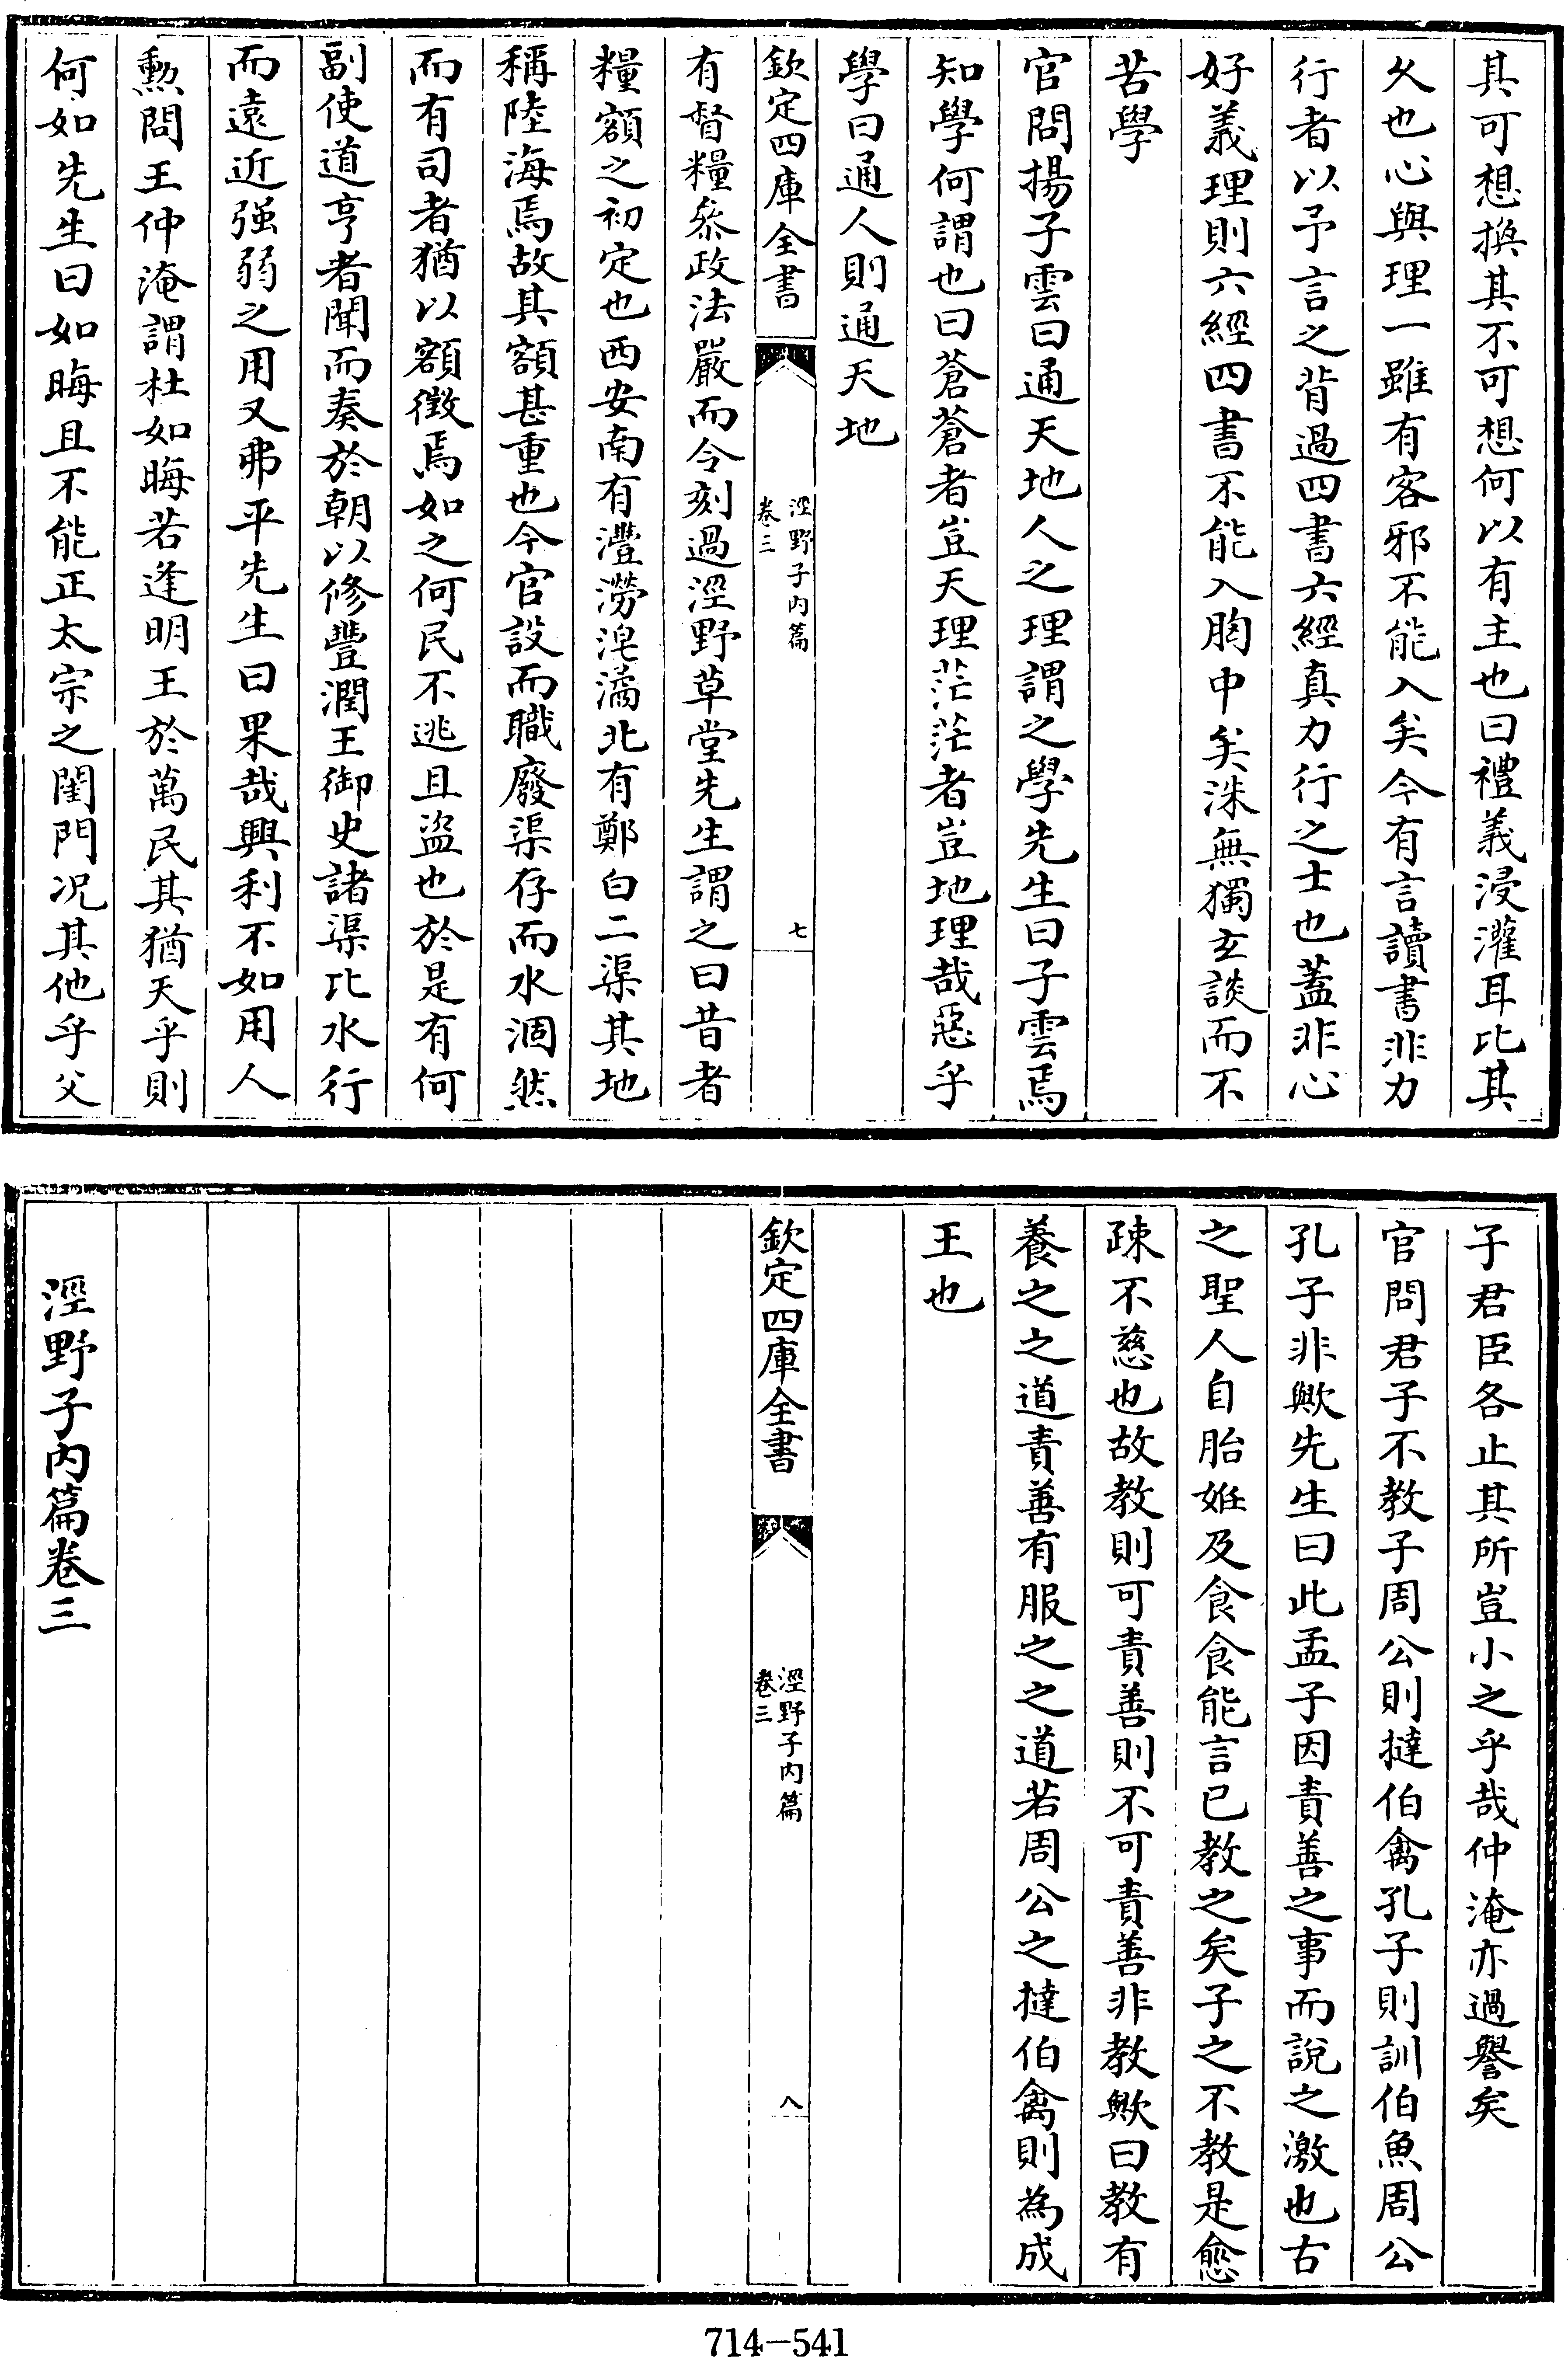 其可想換其不可想何以有主也曰禮義浸灌耳比其
久也心與理一雖有客邪不能入矣今有言讀書非力
行者以予言之背過四書六經真力行之士也蓋非心
好義理則六經四書不能入胸中矣洙無獨玄談而不
苦學
官問揚子雲曰通天地人之理謂之學先生曰子雲焉
知學何謂也曰蒼蒼者豈天理茫茫者豈地理哉惡乎
學曰通人則通天地
欽定四庫全書
涇野子内篇
卷三
七
有督糧叅政法嚴而令刻過涇野草堂先生謂之曰昔者
糧額之初定也西安南有灃澇涺潏北有鄭白二渠其地
稱陸海焉故其額甚重也今官設而職廢渠存而水涸然
而有司者猶以額徴焉如之何民不逃且盗也於是有何
副使道亨者聞而奏於朝以修豐潤王御史諸渠比水行
而遠近强弱之用又弗平先生曰果哉興利不如用人
勲問王仲淹謂杜如晦若逢明王於萬民其猶天乎則
何如先生曰如晦且不能正太宗之閨門况其他乎父
子君臣各止其所豈小之乎哉仲淹亦過譽矣
官問君子不教子周公則撻伯禽孔子則訓伯魚周公
孔子非歟先生曰此孟子因責善之事而說之激也古
之聖人自胎姙及食食能言已教之矣子之不教是愈
疎不慈也故教則可責善則不可責善非教歟曰教有
養之之道責善有服之之道若周公之撻伯禽則為成
王也
欽定四庫全書
涇野子内篇
卷三
八
涇野子内篇卷三
714-541